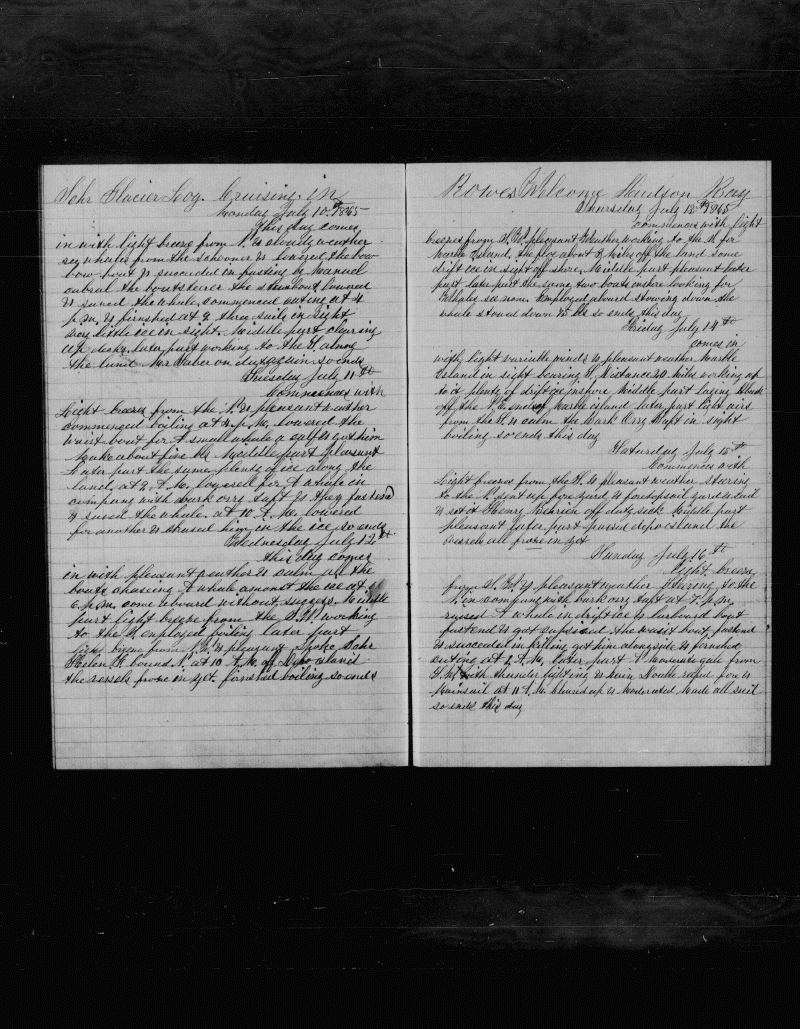 Schr Glacier Log. Cruising in
Monday July 10th 1865
this day comes
in with light breeze from N. & cloudy weather
saw whales from the schooner & lowered the bow
bow boat & succeeded in fasting by Manuel
Cabral the boatsteerer the starboat lowered
& saved the whale, commenced cuting at 4
p.m. & finished at 7 three sails in sight
very little ice in sight. Middle part clearing
up decks, later part working to the S. along
the land Mr Baker on duty again so ends
Tuesday July 11th
Commences with
Light breeze from the N. & pleasant weather
commenced boiling at 4 p.m. lowered the
waist boat for A small whale & got him
make about five bbl Middle part pleasant
Later part the same plenty of ice along the
land, at 2 A.M. lowered for A whale in
company with bark orry taft & they fastened
& saved the whale. at 10 A.M. lowered
for another & chased him in the ice so ends
Wednesday July 12th
this day comes
in with pleasant weather & calm all the
boats chasing A whale amonst the ice at
6 p.m. come aboard without success. Middle
part light breeze from the S.W. working
to the N employed boiling later part
light breeze from N.E. & pleasant Spoke Schr
Helen F. bound N. at 10 A.M. off Depo island
the vessels froze in yet. finished boiling so ends
Rowes Welcome Hudson Bay
Thursday July 13th 1865
commences with light
breezes from S.W. pleasant Weather working to the N for
Marble Island, the floe about 8 miles off the land some
drift ice in sight off shore, Middle part pleasant later
part later part the same two boats inshore looking for
Whales see none. Employed aboard stowing down the
whale stowed down 75 bbl so ends this day
Friday July 14th
comes in
with light variable winds & pleasant weather Marble
Island in sight bearing W. Distance 20 miles working up
to it plenty of drift ice inshore Middle part laying Aback
off the N.E. end of Marble island later part light airs
from the W. & calm the Bark Orry Taft in sight
boiling so ends this day
Saturday July 15th
Commences with
Light breeze from the W. & pleasant weather stearing
to the N. sent up fore yard & foretopsail yard & bent
& set it Henry Benrick off duty sick Middle part
pleasant later part passed depo island the
vessels all froze in yet
Sunday July 16th
Light breeze
from S.W. & pleasant weather stearing to the
N. in company with bark orry taft at 7 p.m.
raised A whale in drift ice & larboard boat
fastened & got capsized the waist boat fastened
& succeeded in killing got him alongside & finished
cuting at 2 A.M. later part A moderate gale from
S.W. with thunder lighting & rain Double reefed fore &
mainsail at 11 A.M. cleared up & Moderated Made all sail
so ends this day